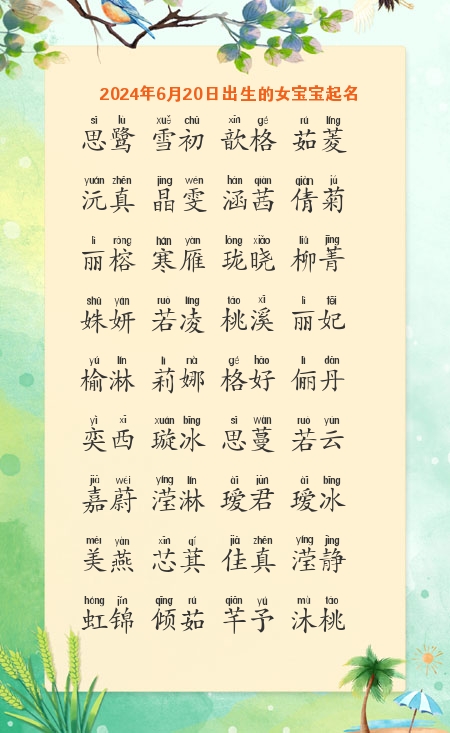 2024年6月20日出生的女宝宝起名
sī lù xuě chū xīn gé rú líng
思鹭 雪初 歆格 茹菱
yuán zhēn jīng wén hán qiàn qiàn jú
沅真 晶雯 涵茜 倩菊
lì róng hán yàn lóng xiǎo liǔ jīng
丽榕 寒雁 珑晓 柳菁
shū yán ruò líng táo xī lì fēi
姝妍 若凌 桃溪 丽妃
yú lín lì nà gé hǎo lì dān
榆淋 莉娜 格好 俪丹
yì xī xuán bīng sī wàn ruò yún
奕西 璇冰 思蔓 若云
jiā wèi yíng lín ài jūn ài bīng
嘉蔚 滢淋 瑷君 瑷冰
měi yàn xīn qí jiā zhēn yíng jìng
美燕 芯萁 佳真 滢静
hóng jǐn qīng rú qiān yǔ mù táo
虹锦 倾茹 芊予 沐桃